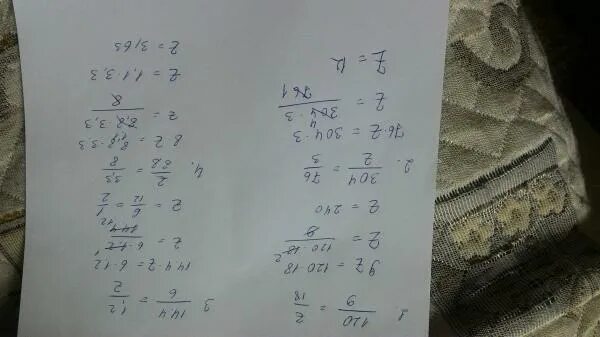 1. 120/9 = z/18
9z = 120·18
z = 120·18/9
z = 240
2. 304/z = 76/3
76·z = 304·3
z = 304·3/76
z = 12
3. 144/6 = 12/z
144·z = 6·12
z = 6·12/144
z = 6/12 = 1/2
4. z/8,8 = 3,3/8
8·z = 8,8·3,3
z = 8,8·3,3/8
z = 1,1·3,3
z = 3,63